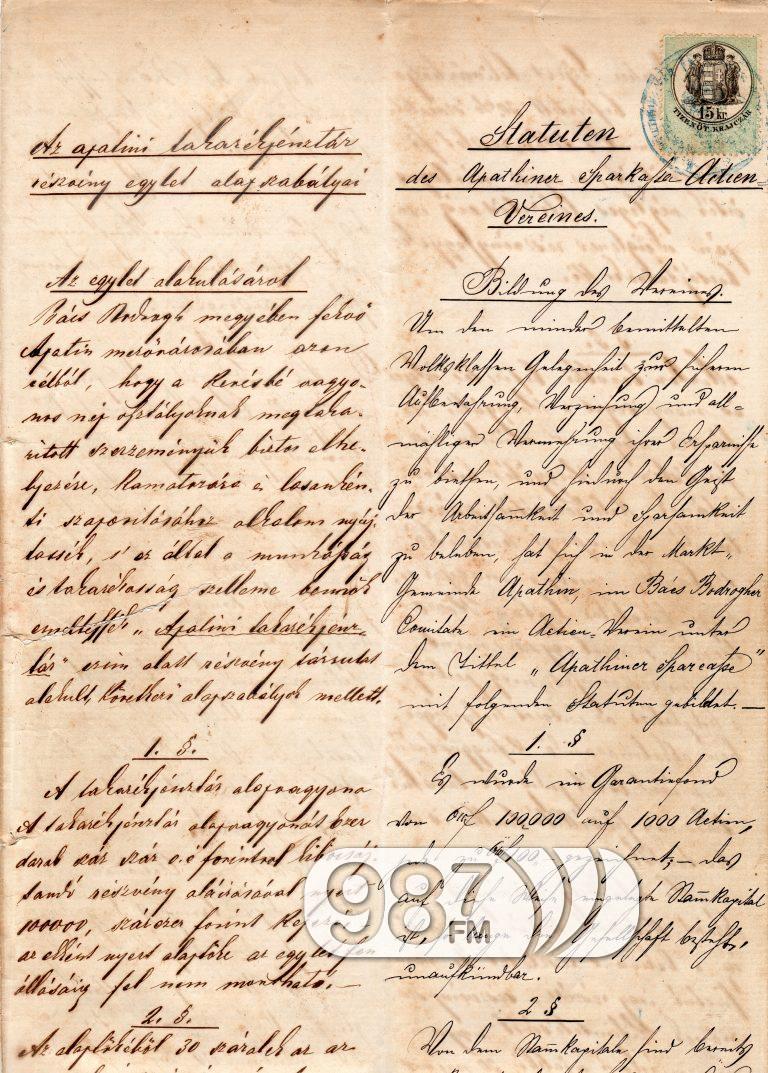 Az apatini takarékpénztár
részvény egylet alapszabályai
Az egylet alakulásáról
Bács Bodrogh megyében fekvő
Apatin mezővárosában azon
célból, hogy a kevésbé vagyo-
nos nép osztályoknak megtaka-
rított szerzeményük biztos elhe-
lyezésére, kamatozása és lassankén-
ti szaporításához alkalom nyúj-
tassék, s' ez által a munkásság
és takarékosság szelleme bennök
"Apatini takarékpénz-
tár" czim alatt részvény társulat
alakult, következő alapszabályok mellett.
1. §.
A takarékpénztár alapvagyona
A takarékpénztár alapvagyonát ezer
darab száz száz o.é forintról
részvény aláírásával
100000, százezer forint
az ekként nyert alaptőke az egylet
fennállásáig fel nem mondható. —
2. §.
Az alaptőkéből 30 százalék az
Statuten
des Apathiner Sparkasse Actien-
Vereines.
Bildung des Vereines.
Um den minder bemittelten
Volksklassen Gelegenheit zur sicheren
Aufbewahrung, Verzinsung und all-
mähliger Vermehrung ihrer Ersparnisse
zu biethen, und hiedurch den Geist
der Arbeitsamkeit und Sparsamkeit
zu beleben, hat sich in der Markt-
Gemeinde Apathin, im Bács Bodrogher
Comitate ein Actien-Verein unter
dem Tittel „Apathiner Sparcasse"
mit folgenden Statuten gebildet. —
1. §
Es wurde ein Garantiefond
von 100,000 auf 1000 Actien,
zu 100 gezeichnet, — das
auf diese Weise eingelegte Stammkapital
ist, so lange die Gesellschaft besteht,
unaufkündbar.
2 §
Von dem Stammkapitale sind bereits
15 kr.
TIZENÖT KRAJCZÁR
987
FM